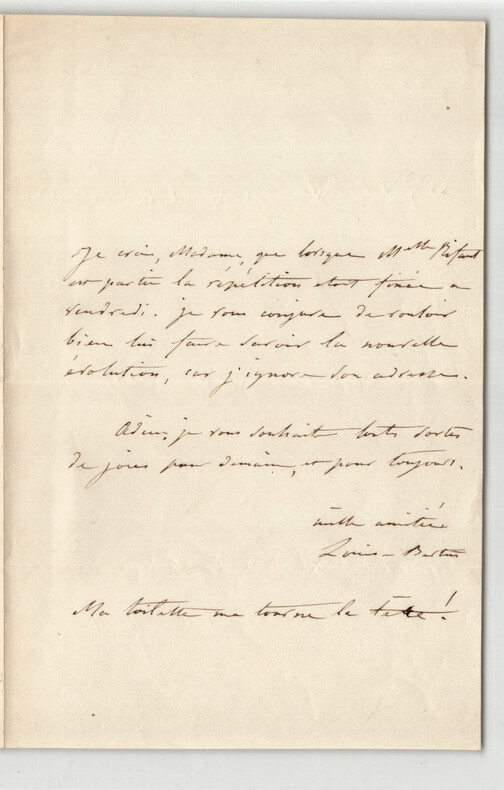 Je crois, Madame, que lorsque Melle
est partie la répétition etait fixée a
vendredi. je vous conjure de vouloir
bien lui faire savoir la nouvelle
évolution, car j'ignore son adresse.
Adieu, je vous souhaite toute sortes
de joies pour demain, et pour toujours.
mille amitiés
Louise Bertin
Ma toilette me tourne la tête!